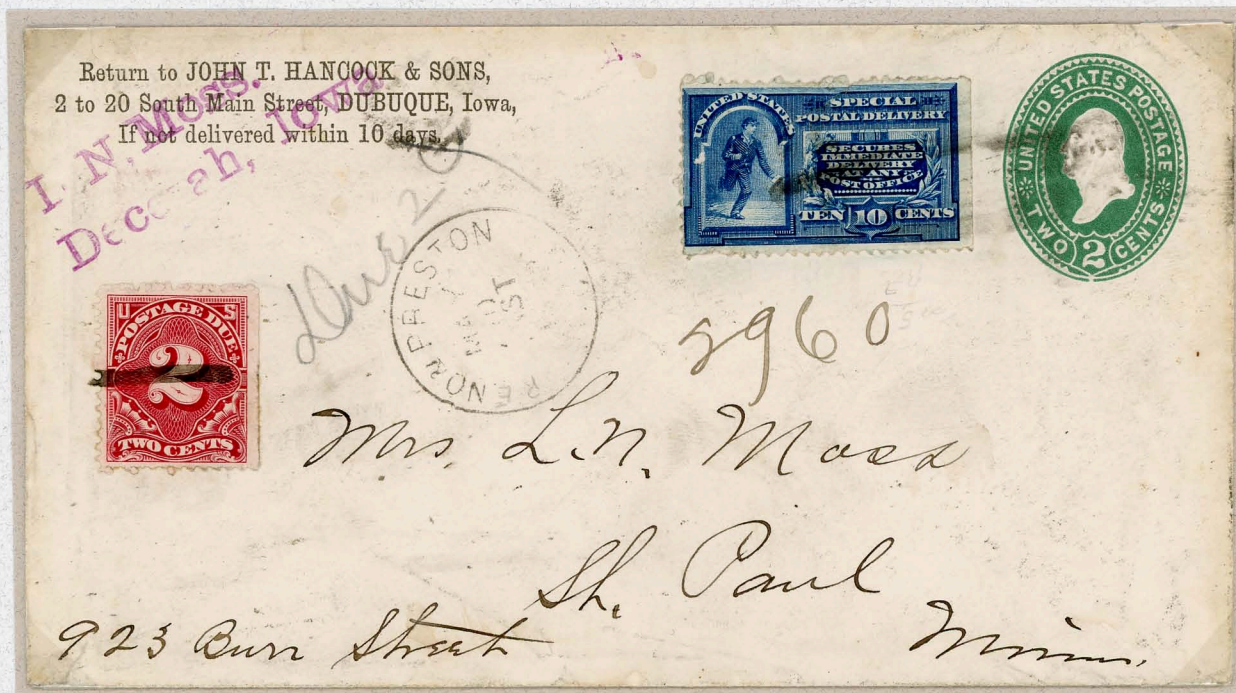 Return to JOHN T. HANCOCK & SONS,
2 to 20 South Main Street, DUBUQUE, Iowa,
If not delivered within 10 days.
N. Moss.
Iowa
UNITED STATES
SPECIAL
POSTAL DELIVERY
SECURES
IMMEDIATE
DELIVERY
AT ANY
POST OFFICE
TEN 10 CENTS
UNITED STATES POSTAGE
TWO 2 CENTS
Due 2c
PRESTON
RENO
U S
POSTAGE DUE
2
TWO CENTS
5960
Mrs. L. N. Moss
St. Paul
923 Burr Street
Minn.